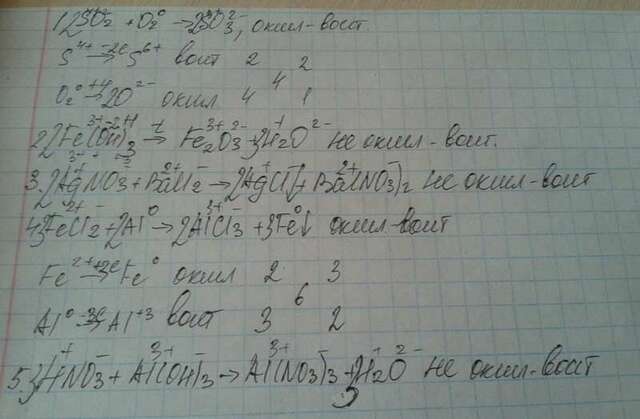 1) 2SO₂ + O₂⁰ → 2SO₃²⁻, окисл-восст.
S⁴⁺ -2e→ S⁶⁺ восст 2 2
4
O₂⁰ +4→ 2O²⁻ окисл 4 1
2) 2Fe(OH)₃ t→ Fe₂³⁺O₃²⁻ + 3H₂⁺O²⁻ не окисл-восст.
3. 2AgNO₃ + BaCl₂ → 2AgCl↓ + Ba(NO₃)₂ не окисл-восст
4. 3FeCl₂ + 2Al⁰ → 2AlCl₃ + 3Fe⁰↓ окисл-восст
Fe²⁺ +2e→ Fe⁰ окисл 2 3
6
Al⁰ -3e→ Al⁺³ восст 3 2
5. 3HNO₃ + Al(OH)₃ → Al(NO₃)₃ + 3H₂O²⁻ не окисл-восст